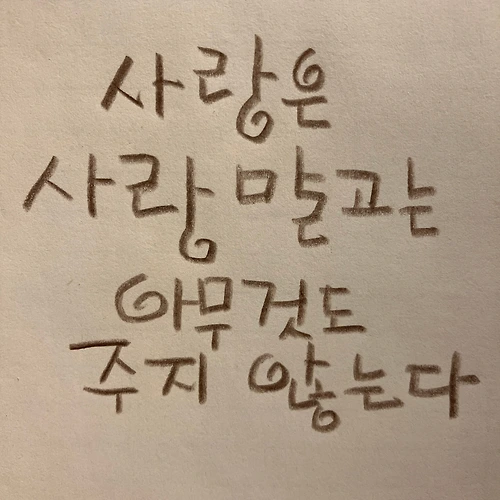 사랑은
사랑 말과는
아무것도
주지 않는다